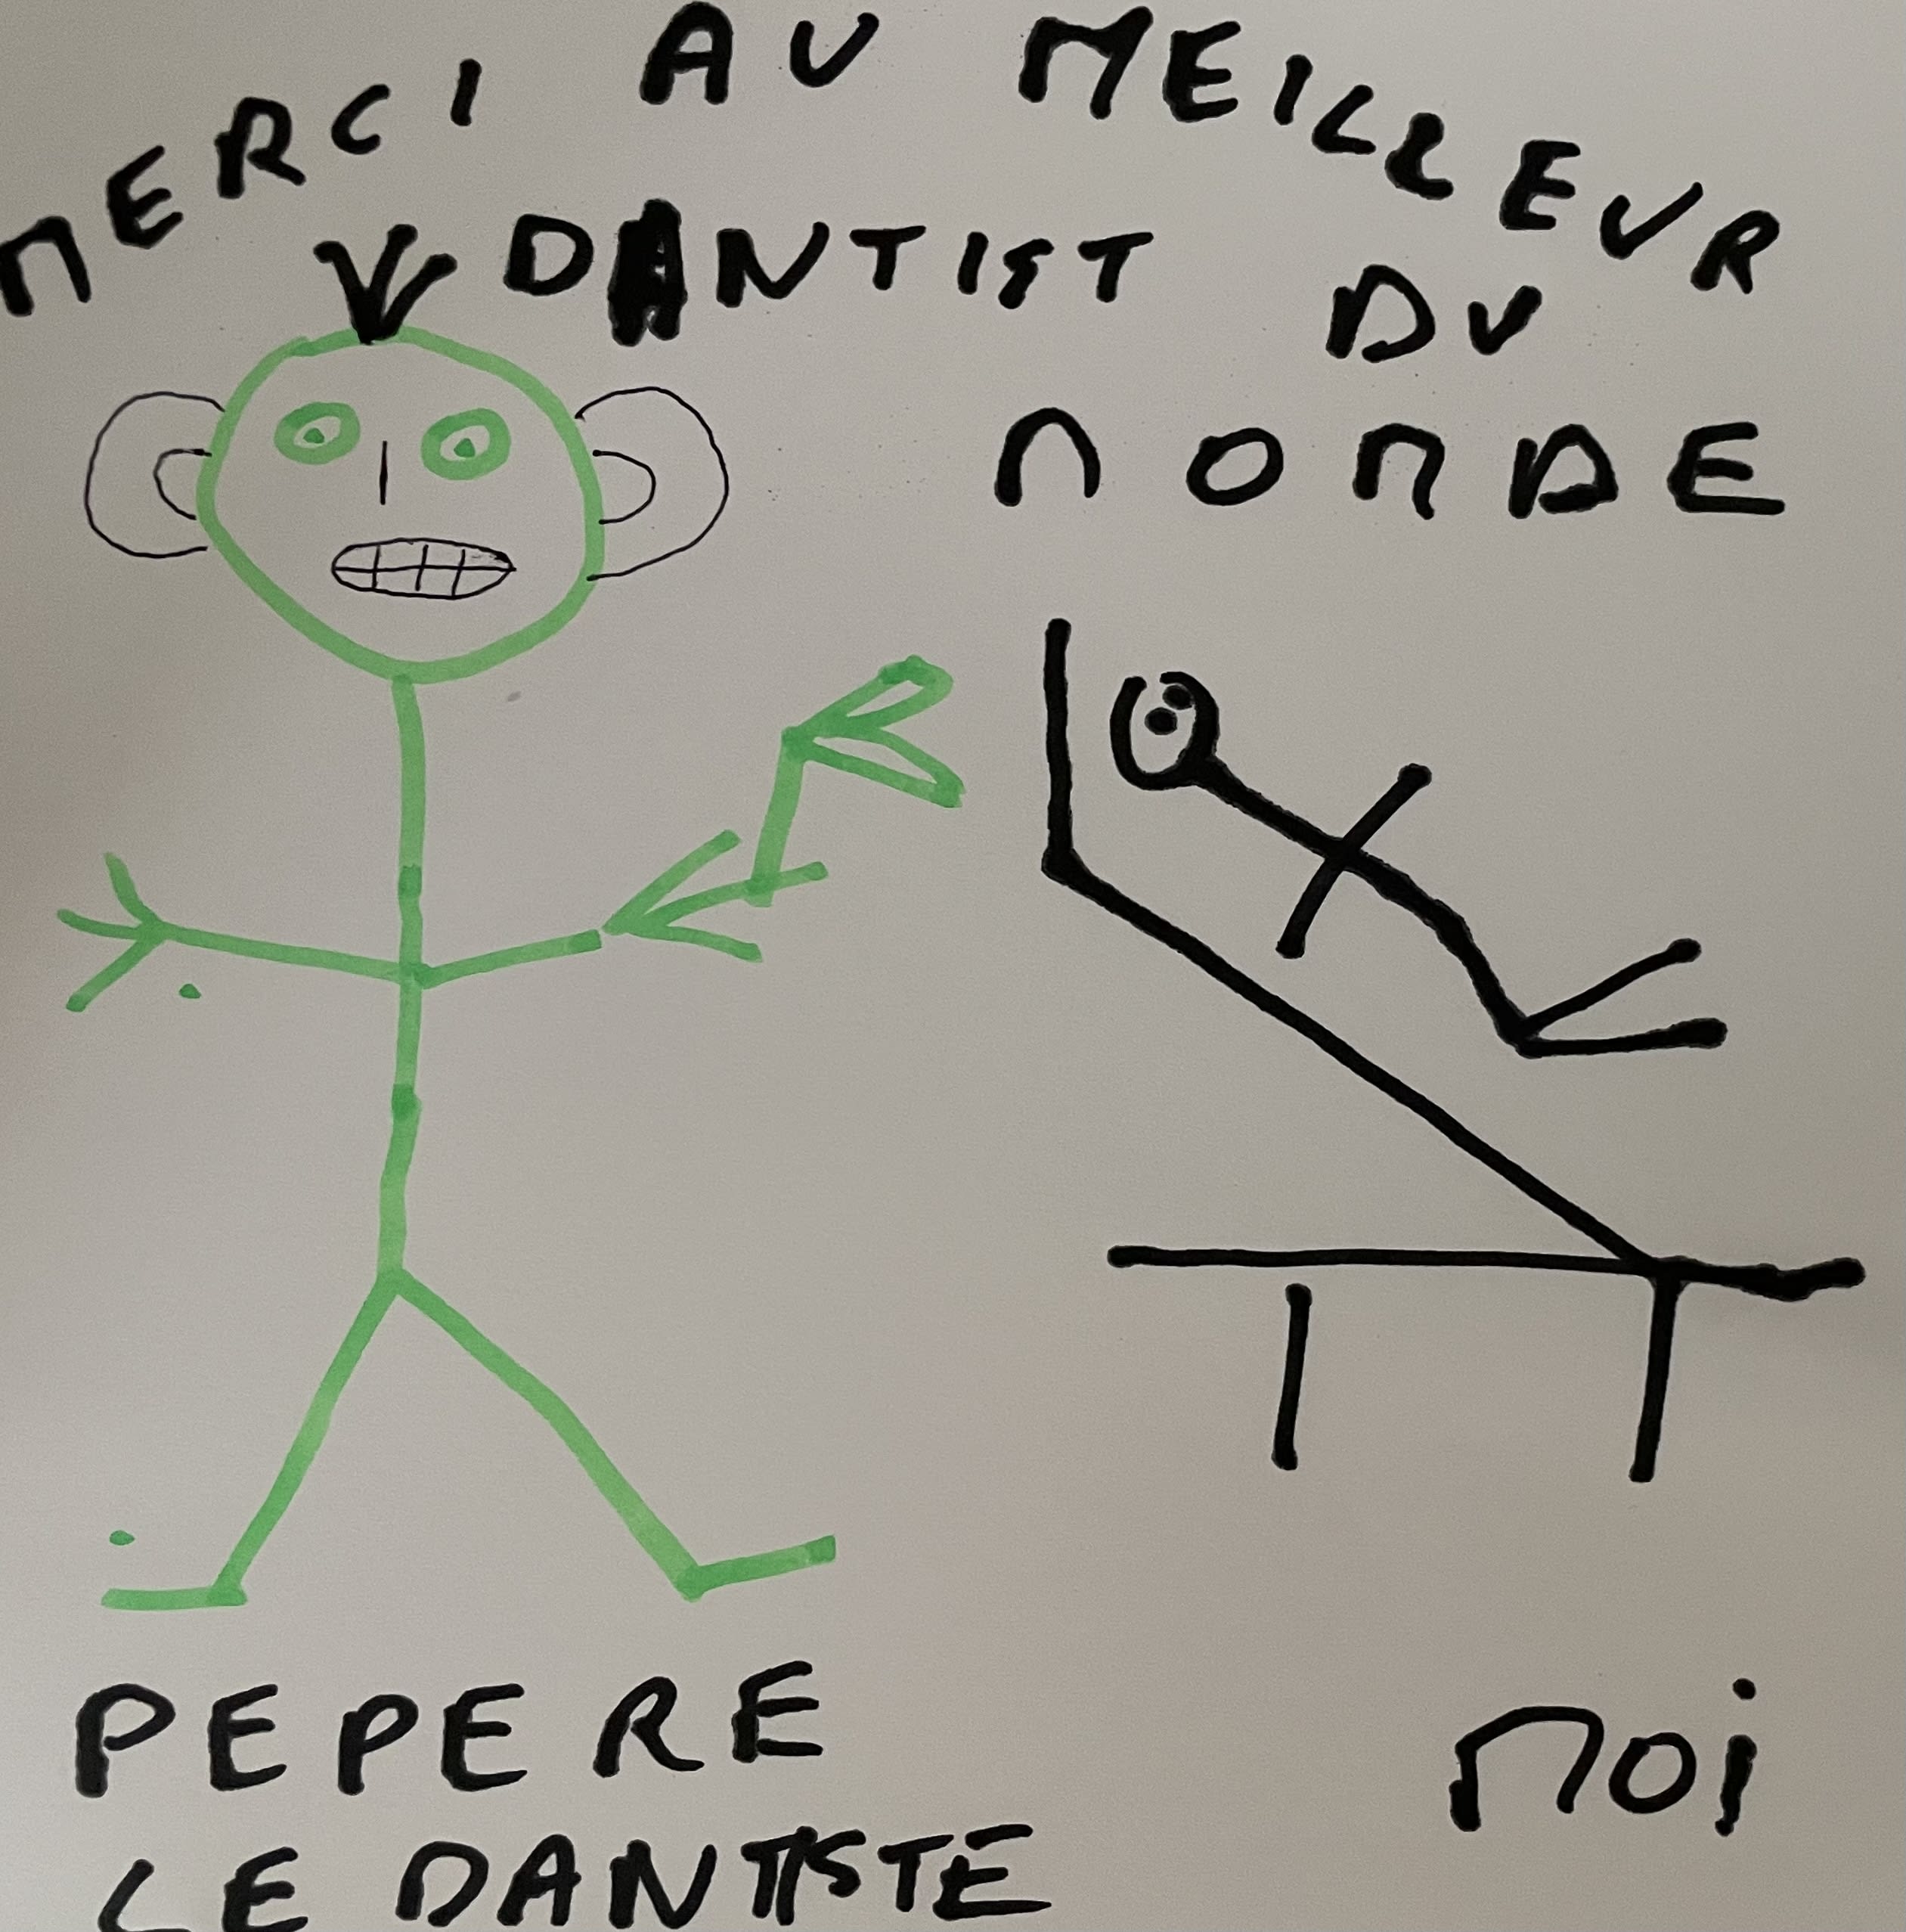 MERCI AU MEILLEUR
DANTIST DU
MONDE
PEPERE
LE DANTISTE
MOi